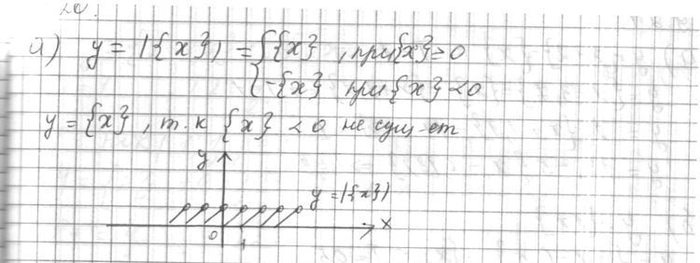 а) y = |{x}| = { {x} , при {x} ≥ 0
{ -{x} при {x} < 0
y = {x} , т.к {x} < 0 не сущ-ет
y
y = |{x}|
x
0 1